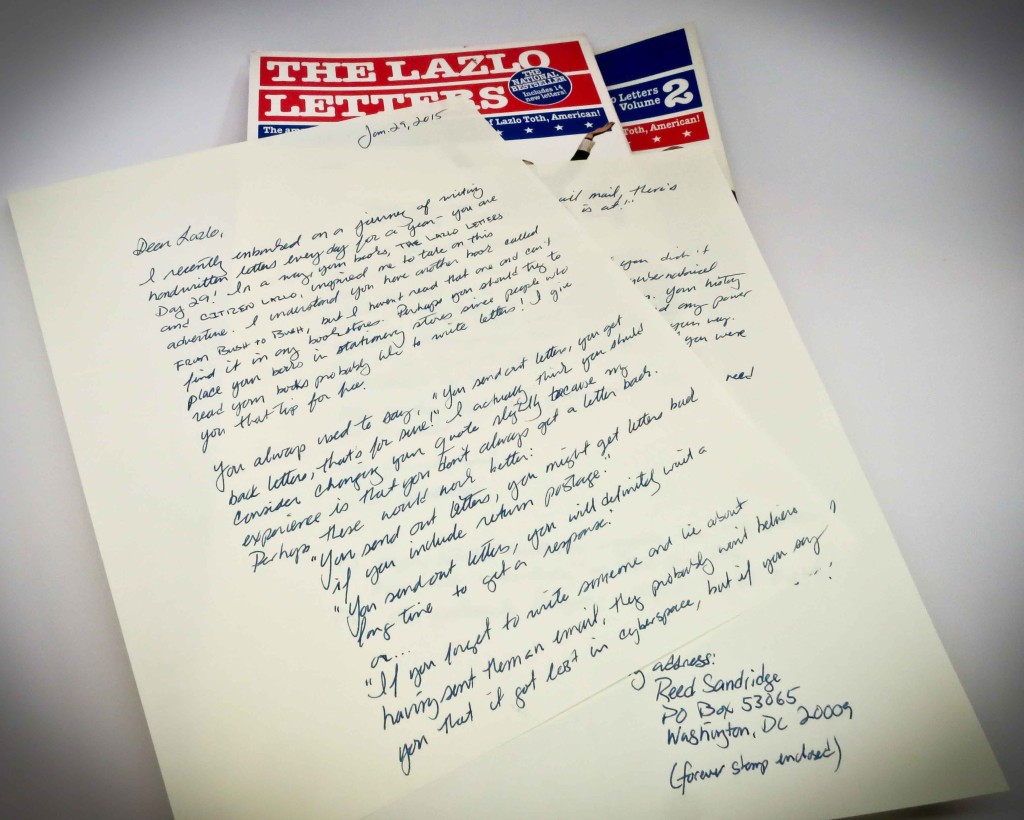 THE LAZLO
LETTERS
THE
NATIONAL
BESTSELLER
Includes 14
new letters!
The
of Lazlo Toth, American!
Letters
Volume 2
Toth, American!
Jan. 29, 2015
Dear Lazlo,
I recently embarked on a journey of writing
handwritten letters every day for a year - you are
Day 29! In a way, your books, THE LAZLO LETTERS
and CITIZEN LAZLO, inspired me to take on this
adventure. I understand you have another book called
FROM BUSH TO BUSH, but I haven't read that one and can't
find it in any bookstores. Perhaps you should try to
place your books in stationery stores since people who
read your books probably like to write letters! I give
you that tip for free.
You always used to say, "You send out letters, you get
back letters, that's for sure!" I actually think you should
consider changing your quote slightly because my
experience is that you don't always get a letter back.
Perhaps these would work better:
"You send out letters, you might get letters back
if you include return postage."
"You send out letters, you will definitely wait a
long time to get a response!"
or...
"If you forget to write someone and lie about
having sent them an email, they probably won't believe
you that it got lost in cyberspace, but if you say
mail, there's
is at!"
you
your history
any power
you were
need
address:
Reed Sandridge
PO Box 53065
Washington, DC 20009
(forever stamp enclosed)